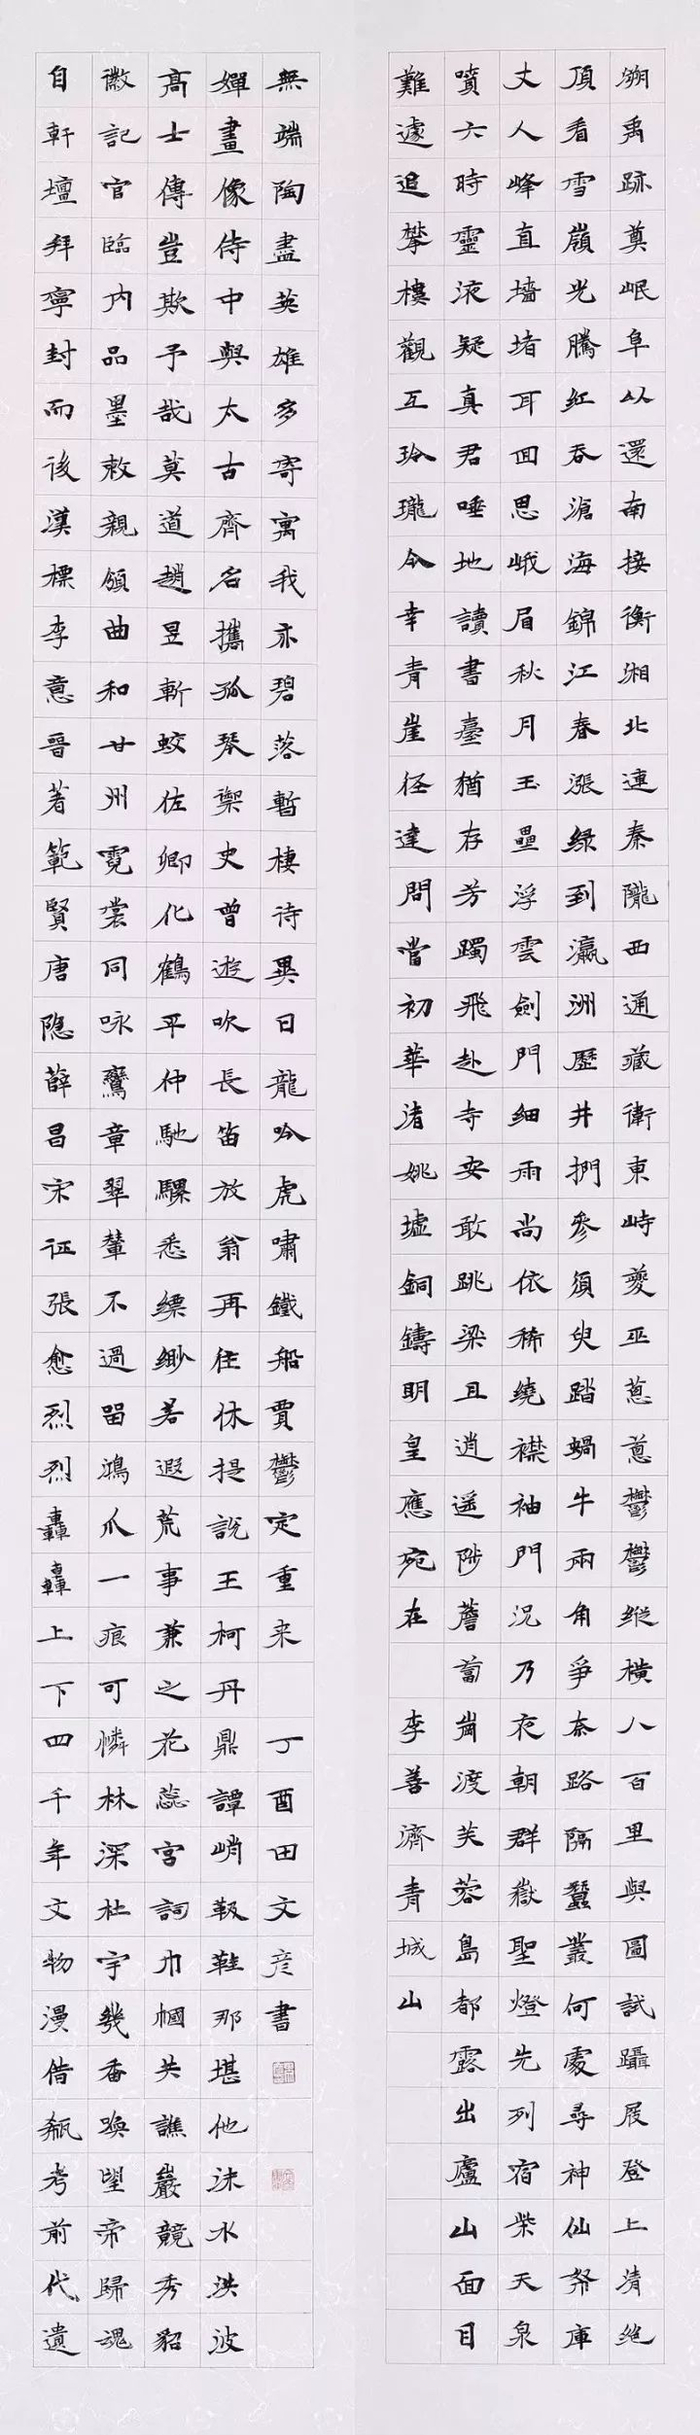 溯禹跡奠岷阜从還南接衡湘北連秦隴西通藏衛東峙夔巫蔥蔥鬱鬱縱橫八百里與圖試躡屐登上清絕
頂看雪嶺光騰紅吞滄海錦江春漲绿到瀛洲歷井捫參須臾踏蝸牛兩角爭奈路隔蠶叢何處尋神仙帑庫
丈人峰直墻堵耳回思峨眉秋月玉壘浮雲劍門细雨尚依稀繞襟袖門況乃夜朝群嶽聖燈先列宿柴天泉
噴六時靈液疑真君唾地讀書臺猶存芳躅飛赴寺安敢跳梁且逍遥陟薝蔔崗渡芙蓉島都露出廬山面目
難遽追攀樓觀互玲瓏今幸青崖径達問當初華渚姚墟銅鑄明皇應宛在
李善濟青城山
自軒壇拜寧封而後漢標李意晉著範賢唐隐薛昌宋征張愈烈烈轟轟上下四千年文物漫借瓻考前代遺
徽記官臨内品墨敕親頒曲和甘州霓裳同咏鸞章翠輦不過留鴻爪一痕可憐林深杜宇幾番喚望帝歸魂
高士傳豈欺予哉莫道趙昱斬蛟佐卿化鶴平仲馳騾悉缥緲若遐荒事兼之花蕊宮詞巾幗共譙巖競秀貂
嬋畫像侍中與太古齊名攜孤琴禦史曾遊吹長笛放翁再住休提說王柯丹鼎譚峭靸鞋那堪他沫水洪波
無端陶盡英雄多寄寓我亦碧落暫棲待異日龍吟虎嘯鐵船賈鬱定重来
丁酉田文彦書